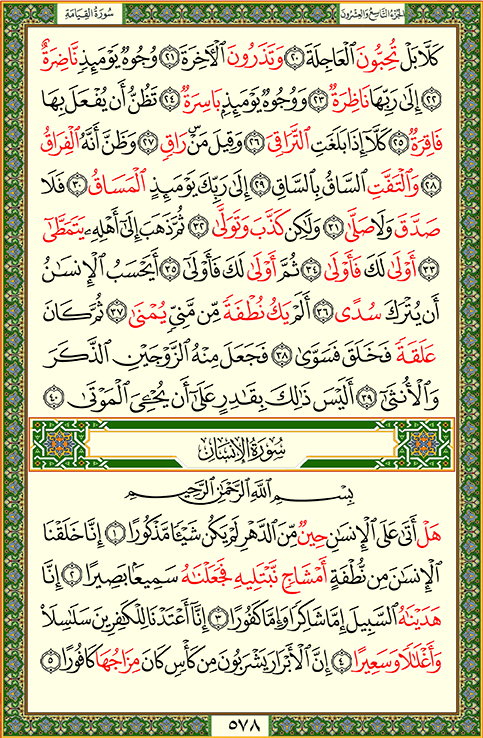 سُورَةُ القِيَامَةِ
الجُزْءُ التَّاسِعُ وَالعِشْرُونَ
كَلَّا بَلْ تُحِبُّونَ ٱلْعَاجِلَةَ ﴿٢٠﴾ وَتَذَرُونَ ٱلْـَٔاخِرَةَ ﴿٢١﴾ وُجُوهٌ يَوْمَئِذٍ نَّاضِرَةٌ
﴿٢٢﴾ إِلَىٰ رَبِّهَا نَاظِرَةٌ ﴿٢٣﴾ وَوُجُوهٌ يَوْمَئِذٍۭ بَاسِرَةٌ ﴿٢٤﴾ تَظُنُّ أَن يُفْعَلَ بِهَا
فَاقِرَةٌ ﴿٢٥﴾ كَلَّآ إِذَا بَلَغَتِ ٱلتَّرَاقِىَ ﴿٢٦﴾ وَقِيلَ مَنْ ۜ رَاقٍ ﴿٢٧﴾ وَظَنَّ أَنَّهُ ٱلْفِرَاقُ
﴿٢٨﴾ وَٱلْتَفَّتِ ٱلسَّاقُ بِٱلسَّاقِ ﴿٢٩﴾ إِلَىٰ رَبِّكَ يَوْمَئِذٍ ٱلْمَسَاقُ ﴿٣٠﴾ فَلَا
صَدَّقَ وَلَا صَلَّىٰ ﴿٣١﴾ وَلَٰكِن كَذَّبَ وَتَوَلَّىٰ ﴿٣٢﴾ ثُمَّ ذَهَبَ إِلَىٰٓ أَهْلِهِۦ يَتَمَطَّىٰٓ
﴿٣٣﴾ أَوْلَىٰ لَكَ فَأَوْلَىٰ ﴿٣٤﴾ ثُمَّ أَوْلَىٰ لَكَ فَأَوْلَىٰٓ ﴿٣٥﴾ أَيَحْسَبُ ٱلْإِنسَٰنُ
أَن يُتْرَكَ سُدًى ﴿٣٦﴾ أَلَمْ يَكُ نُطْفَةً مِّن مَّنِىٍّ يُمْنَىٰ ﴿٣٧﴾ ثُمَّ كَانَ
عَلَقَةً فَخَلَقَ فَسَوَّىٰ ﴿٣٨﴾ فَجَعَلَ مِنْهُ ٱلزَّوْجَيْنِ ٱلذَّكَرَ
وَٱلْأُنثَىٰٓ ﴿٣٩﴾ أَلَيْسَ ذَٰلِكَ بِقَٰدِرٍ عَلَىٰٓ أَن يُحْـِۧىَ ٱلْمَوْتَىٰ ﴿٤٠﴾
سُورَةُ الإِنسَانِ
بِسْمِ ٱللَّهِ ٱلرَّحْمَٰنِ ٱلرَّحِيمِ
هَلْ أَتَىٰ عَلَى ٱلْإِنسَٰنِ حِينٌ مِّنَ ٱلدَّهْرِ لَمْ يَكُن شَيْـًٔا مَّذْكُورًا ﴿١﴾ إِنَّا خَلَقْنَا
ٱلْإِنسَٰنَ مِن نُّطْفَةٍ أَمْشَاجٍ نَّبْتَلِيهِ فَجَعَلْنَٰهُ سَمِيعًۢا بَصِيرًا ﴿٢﴾ إِنَّا
هَدَيْنَٰهُ ٱلسَّبِيلَ إِمَّا شَاكِرًا وَإِمَّا كَفُورًا ﴿٣﴾ إِنَّآ أَعْتَدْنَا لِلْكَٰفِرِينَ سَلَٰسِلَا۟
وَأَغْلَٰلًا وَسَعِيرًا ﴿٤﴾ إِنَّ ٱلْأَبْرَارَ يَشْرَبُونَ مِن كَأْسٍ كَانَ مِزَاجُهَا كَافُورًا ﴿٥﴾
٥٧٨